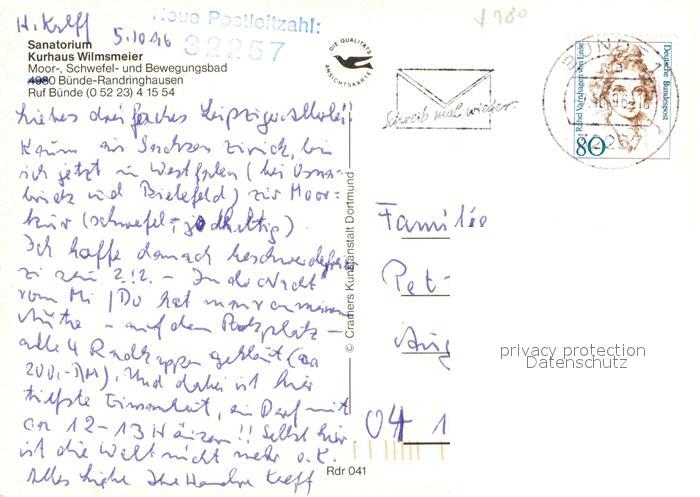 H. Kreff
5.10.96
Neue Postleitzahl:
32257
4980
Sanatorium
Kurhaus Wilmsmeier
Moor-, Schwefel- und Bewegungsbad
4980 Bünde-Randringhausen
Ruf Bünde (0 52 23) 4 15 54
DIE QUALITÄTS
ANSICHTSKARTE
Schreib mal wieder.
BÜNDE 1
Deutsche Bundespost
Rahel Varnhagen von Ense
80
Liebes dreifaches Leipziger Allerlei!
Kaum aus Sachsen zurück, bin
ich jetzt in Westfalen (bei Osna-
brück und Bielefeld) zur Moor-
kur (schwefel-, jodhaltig)
Ich hoffe danach beschwerdefrei
zu sein ?!? - In die Nacht
vom Mi / Do hat man an meinem
Auto - auf dem Parkplatz -
alle 4 Radkappen geklaut (ca
200,- DM). Und dabei ist hier
tiefste Einsamkeit, ein Dorf mit
ca 12-13 Häusern!! Selbst hier
ist die Welt nicht mehr o.k.
Alles Liebe Ihr Kreff
© Cramers Kunstanstalt Dortmund
Rdr 041
Familie
Pet
Aug
04 1
privacy protection
Datenschutz